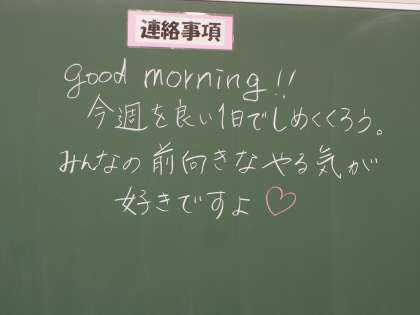 連絡事項
good morning!!
今週を良い1日でしめくくろう。
みんなの前向きなやる気が
好きですよ♡